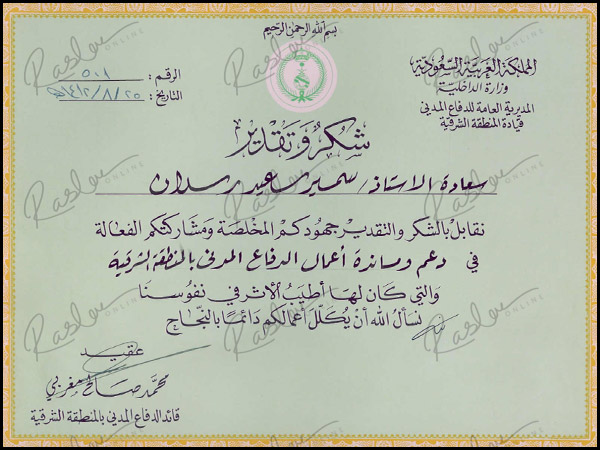 بسم الله الرحمن الرحيم
المملكة العربية السعودية
وزارة الداخلية
المديرية العامة للدفاع المدني
قيادة المنطقة الشرقية
الرقم : ٥٠١
التاريخ : ١٤١٢/٨/٢٥هـ
شكر وتقدير
سعادة الاستاذ / سمير سعيد رسلان
نقابل بالشكر والتقدير جهودكم المخلصة ومشاركتكم الفعالة
في دعم ومساندة أعمال الدفاع المدني بالمنطقة الشرقية
والتي كان لها أطيب الأثر في نفوسنا
نسأل الله أن يكلل أعمالكم دائمًا بالنجاح
عقيد
محمد صالح المغربي
قائد الدفاع المدني بالمنطقة الشرقية
Raslan
ONLINE